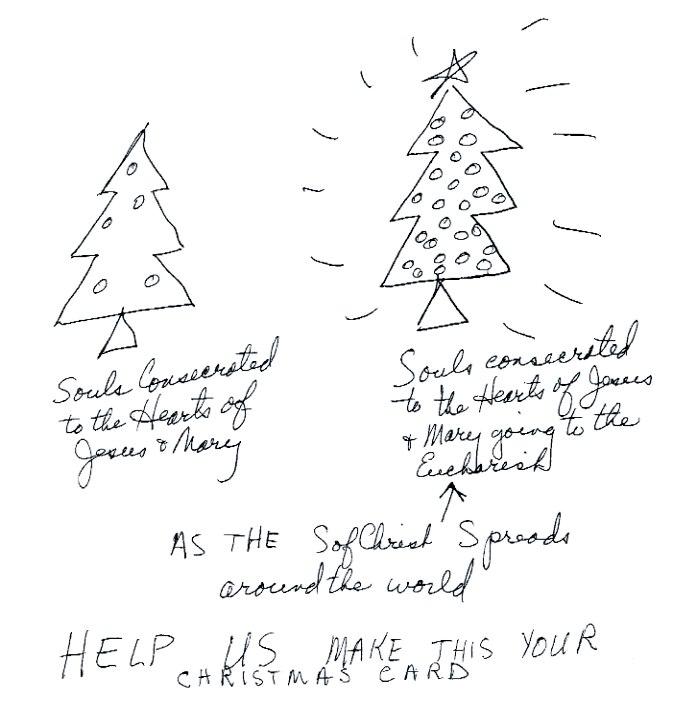 Souls Consecrated
to the Hearts of
Jesus & Mary
Souls consecrated
to the Hearts of Jesus
& Mary going to the
Eucharist
AS THE SofChrist Spreads
around the world
HELP US MAKE THIS YOUR
CHRISTMAS CARD